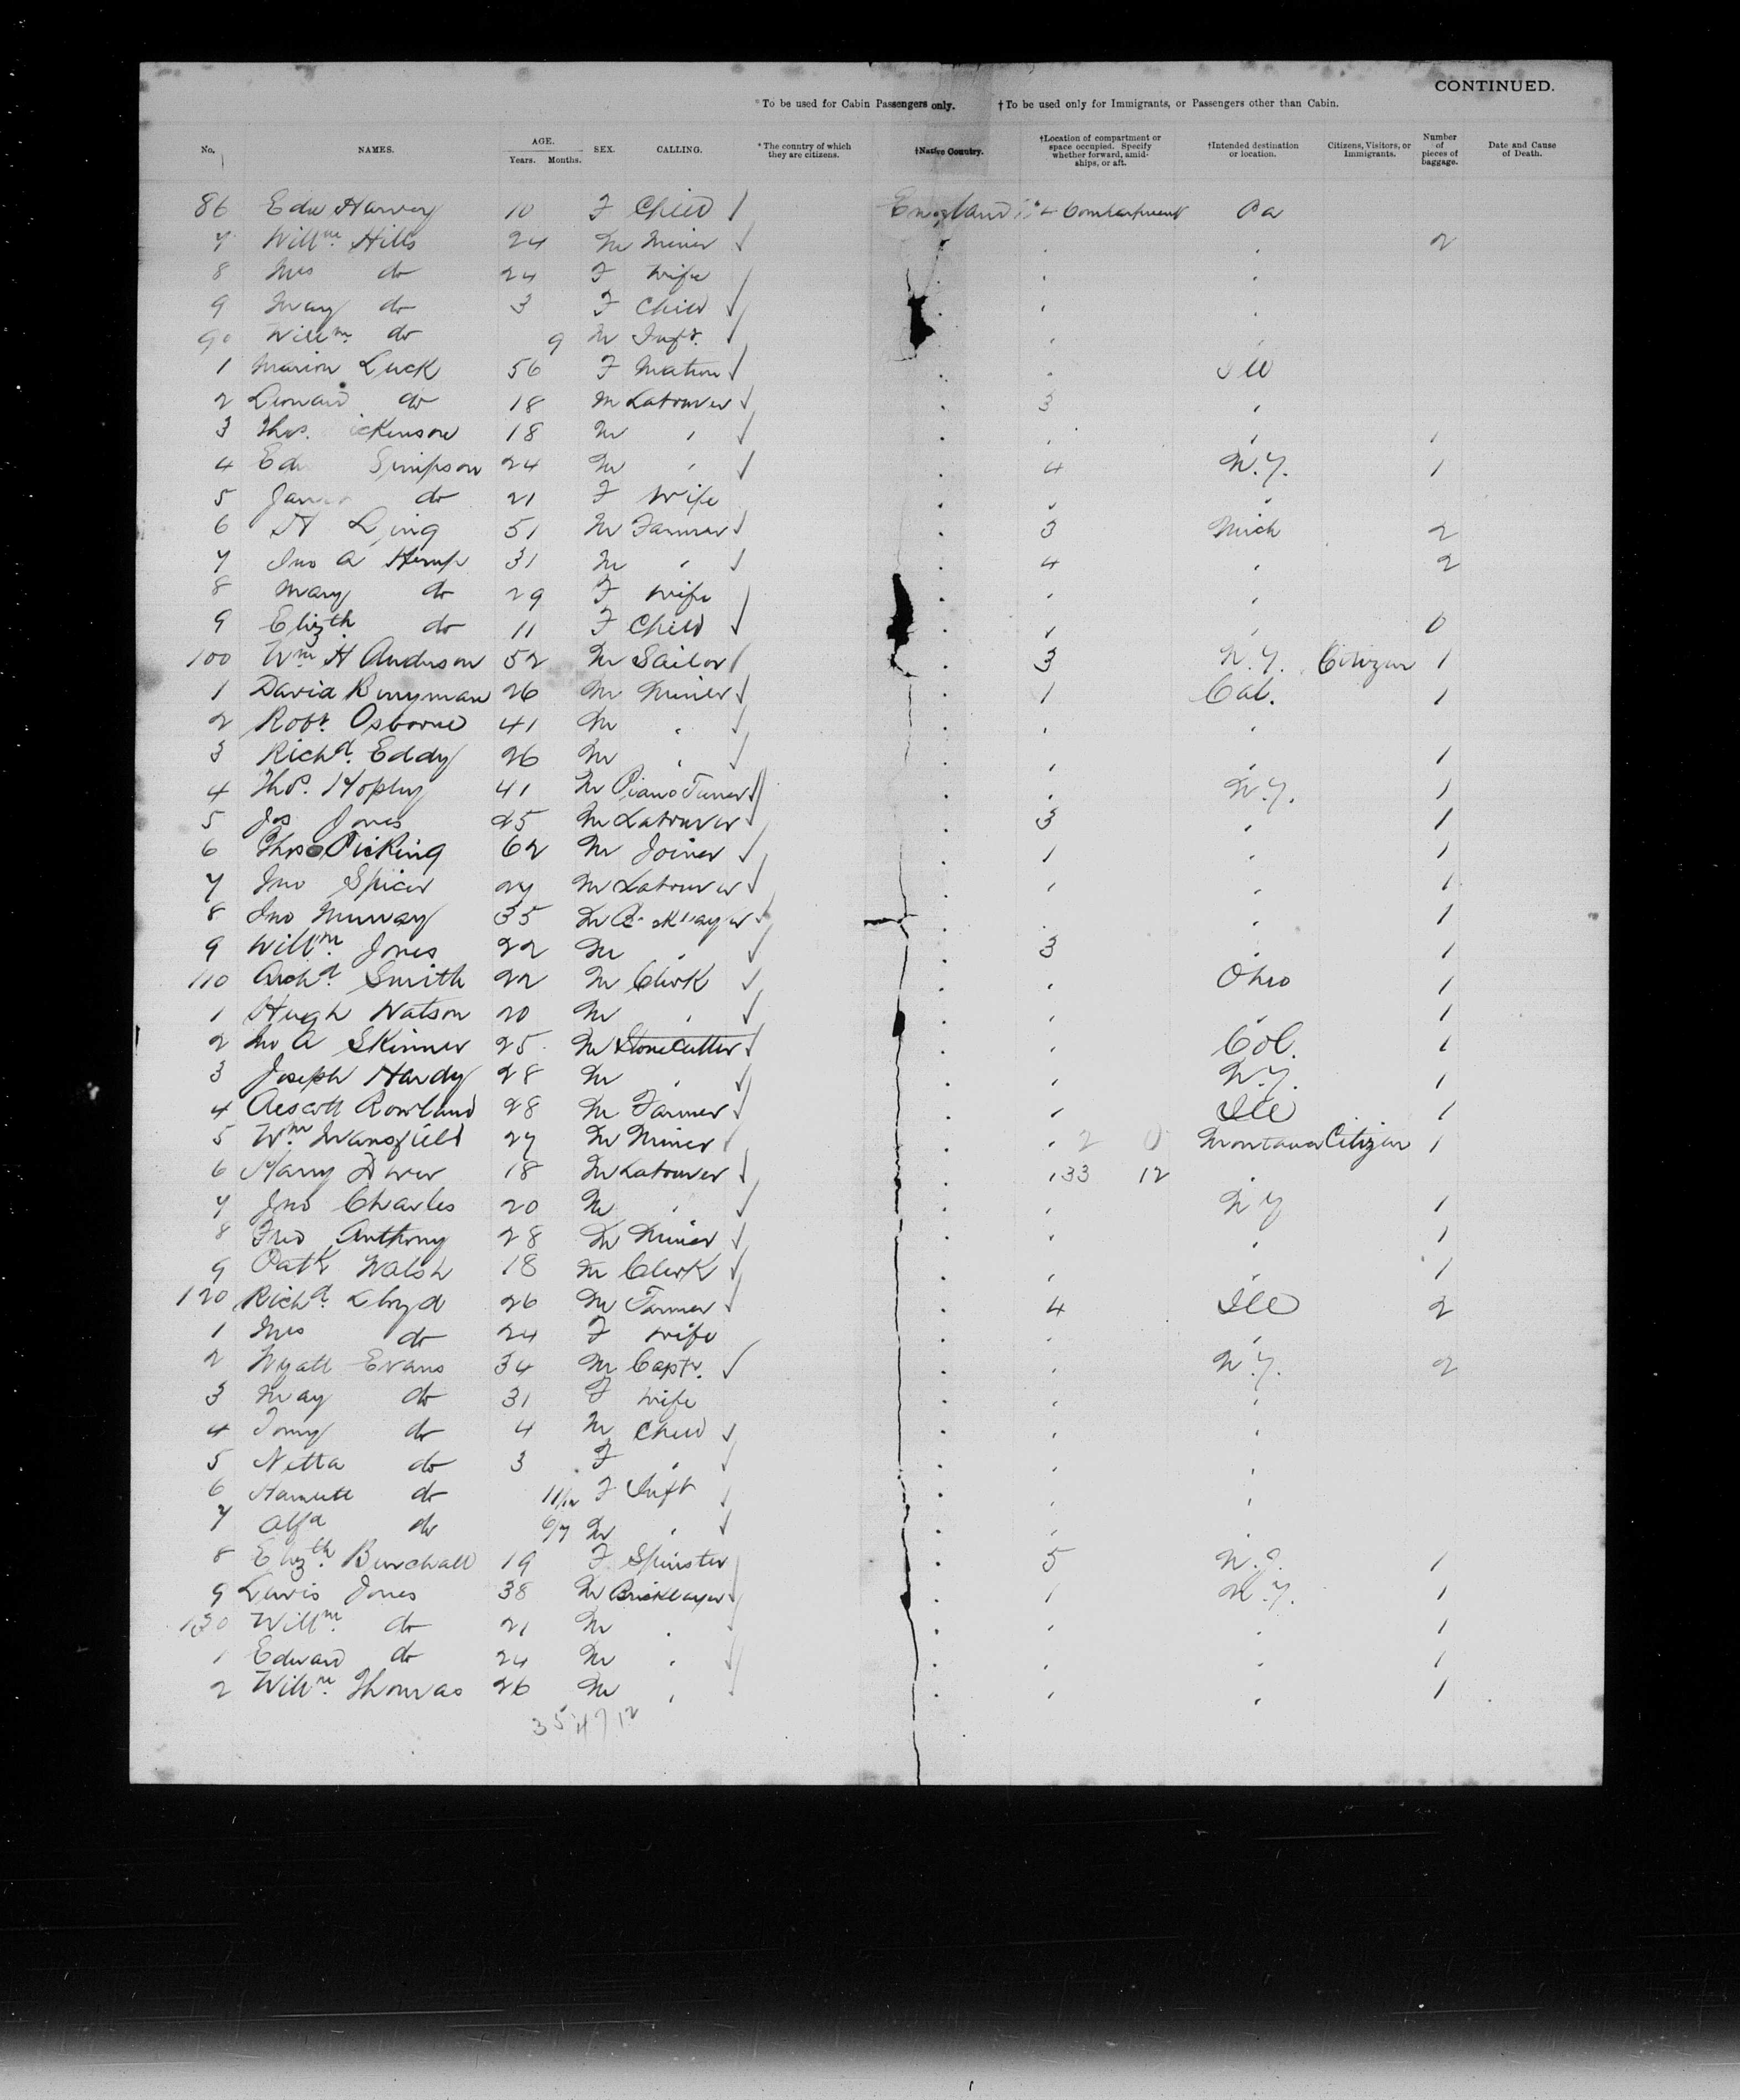 CONTINUED.
*To be used for Cabin Passengers only. †To be used only for Immigrants, or Passengers other than Cabin.
No. NAMES. AGE. Years. Months. SEX. CALLING. *The country of which they are citizens. †Native Country. †Location of compartment or space occupied. Specify whether forward, amidships, or aft. †Intended destination or location. Citizens, Visitors, or Immigrants. Number of pieces of baggage. Date and Cause of Death.
86 Edw Harvey 10 F Child England 4 Compartment Pa
7 Willm Hills 24 M Miner 2
8 Mrs do 24 F Wife
9 May do 3 F Child
90 Willm do 9 M Inft.
1 Marion Luck 56 F Matron Ill
2 Leonard do 18 M Labourer 3
3 Thos. ickenson 18 M " 1
4 Edw Simpson 24 M " 4 N.Y. 1
5 Jane do 21 F Wife
6 H 51 M Farmer 3 Mich 2
7 Jno A Hemp 31 M " 4 " 2
8 Mary do 29 F Wife
9 Elizth do 11 F Child 0
100 Wm H Anderson 52 M Sailor 3 N.Y. Citizen 1
1 David Berryman 26 M Miner 1 Cal. 1
2 Robt. Osborne 41 M "
3 Richd. Eddy 26 M " 1
4 Thos. Hopley 41 M Piano Tuner N.Y. 1
5 Jos Jones 25 M Labourer 3 " 1
6 Thos Picking 62 M Joiner 1 " 1
7 Jno Spicer 27 M Labourer 1
8 Jno Murray 35 M 1
9 Willm Jones 22 M " 3 " 1
110 Archd. Smith 22 M Clerk Ohio 1
1 Hugh Watson 20 M " 1
2 Jno A Skinner 25 M Stonecutter Col. 1
3 Joseph Hardy 28 M " N.Y. 1
4 Rowland 28 M Farmer Ill 1
5 Wm. Mansfield 27 M Miner 2 0 Montana Citizen 1
6 Harry 18 M Labourer 133 12
7 Jno Charles 20 M " N Y 1
8 Fred Anthony 28 M Miner 1
9 Patk Walsh 18 M Clerk 1
120 Richd. Lloyd 26 M Farmer 4 Ill 2
1 Mrs do 24 F Wife
2 Wyatt Evans 34 M Capt. N.Y. 2
3 May do 31 F Wife
4 Tomy do 4 M Child
5 Netta do 3 F "
6 do 11/12 F Inft
7 Alfd do M "
8 Elizth. Burchall 19 F Spinster 5 1
9 Lewis Jones 38 M Bricklayer 1 N.Y. 1
130 Willm do 21 M " 1
1 Edward do 24 M " 1
2 Willm. Thomas 26 M " 1
35 47 12